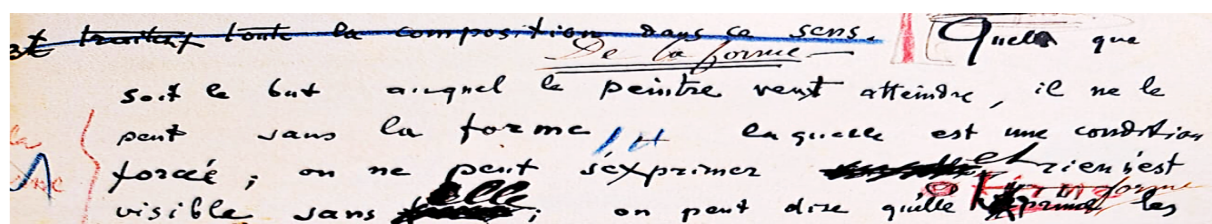 et traitent toute la composition dans ce sens. Quel que
De la forme
soit le but auquel le peintre veut atteindre, il ne le
peut sans la forme, laquelle est une condition
forcée ; on ne peut s'exprimer et rien n'est
visible sans elle ; on peut dire qu'elle exprime les
forme